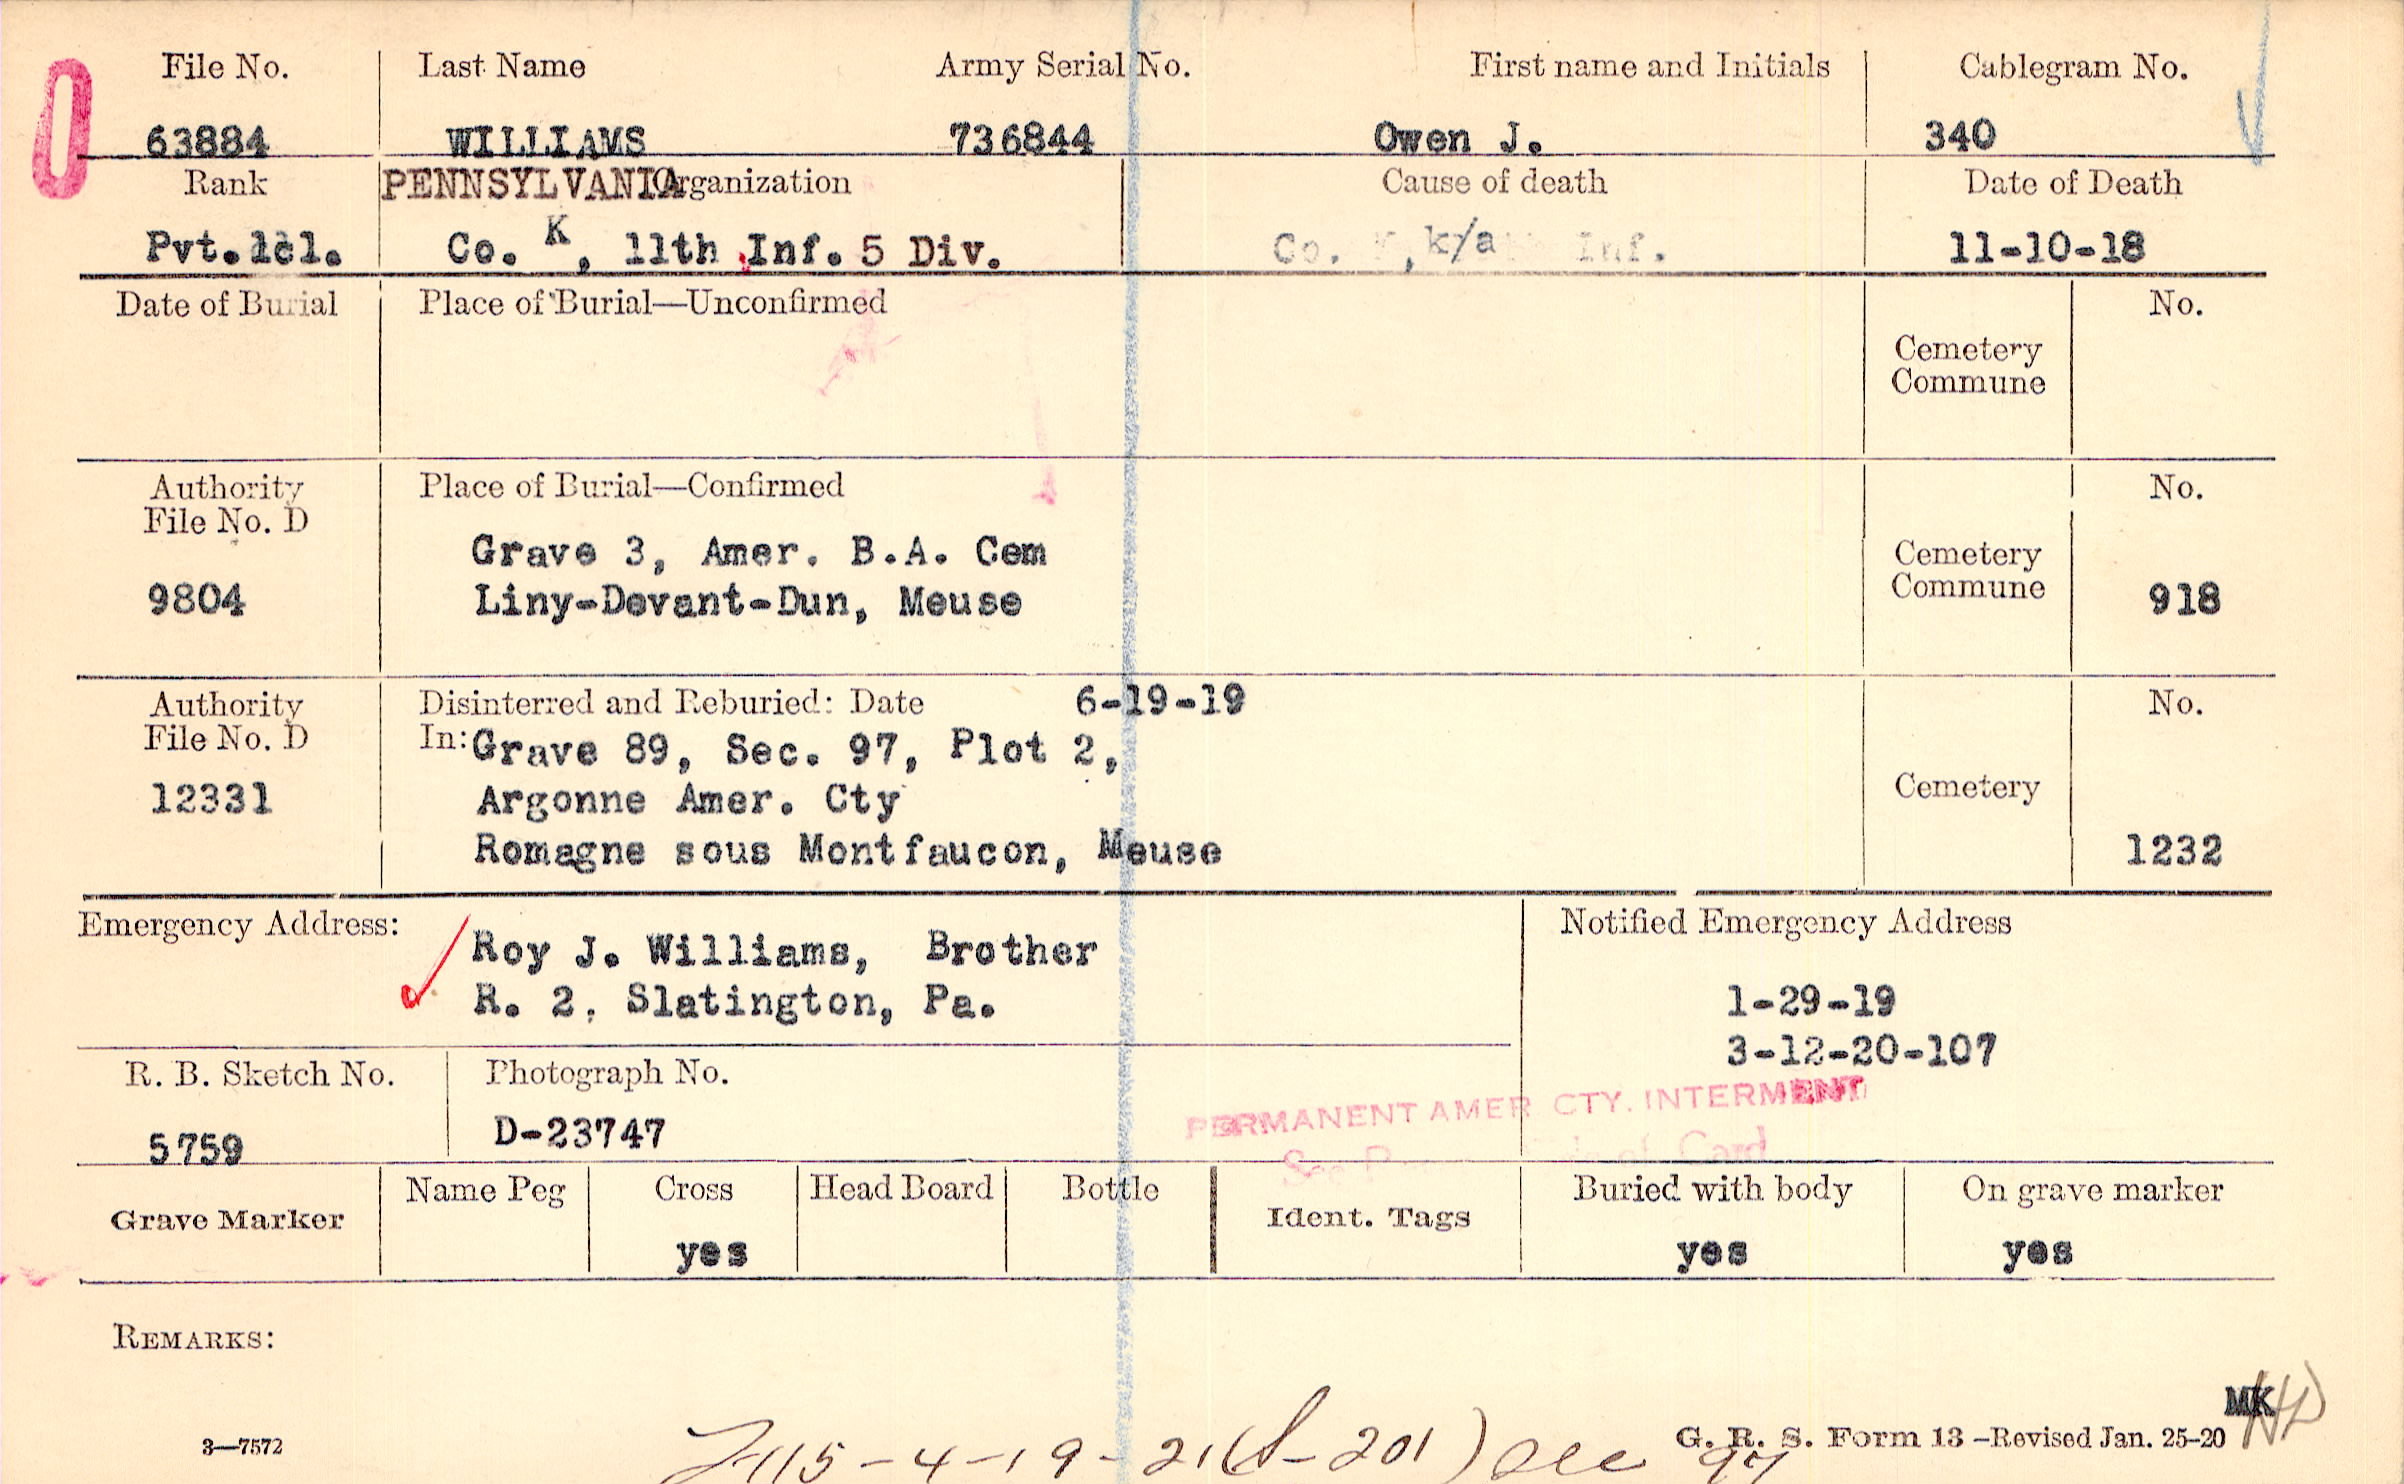 File No. Last Name Army Serial No. First name and Initials Cablegram No.
63884 WILLIAMS 736844 Owen J. 340
Rank PENNSYLVANIA Organization Cause of death Date of Death
Pvt.1cl. Co. K, 11th Inf. 5 Div. Co. , k/a Inf. 11-10-18
Date of Burial Place of Burial—Unconfirmed No.
Cemetery
Commune
Authority Place of Burial—Confirmed No.
File No. D
Grave 3, Amer. B.A. Cem Cemetery
9804 Liny-Devant-Dun, Meuse Commune 918
Authority Disinterred and Reburied: Date 6-19-19 No.
File No. D In: Grave 89, Sec. 97, Plot 2,
12331 Argonne Amer. Cty Cemetery
Romagne sous Montfaucon, Meuse 1232
Emergency Address: Notified Emergency Address
Roy J. Williams, Brother
R. 2, Slatington, Pa. 1-29-19
3-12-20-107
R. B. Sketch No. Photograph No.
PERMANENT AMER CTY. INTERMENT
5759 D-23747
See Card
Grave Marker Name Peg Cross Head Board Bottle Ident. Tags Buried with body On grave marker
yes yes yes
REMARKS:
MK
3—7572 G. R. S. Form 13 -Revised Jan. 25-20
115-4-19-21 (S-201) see 97